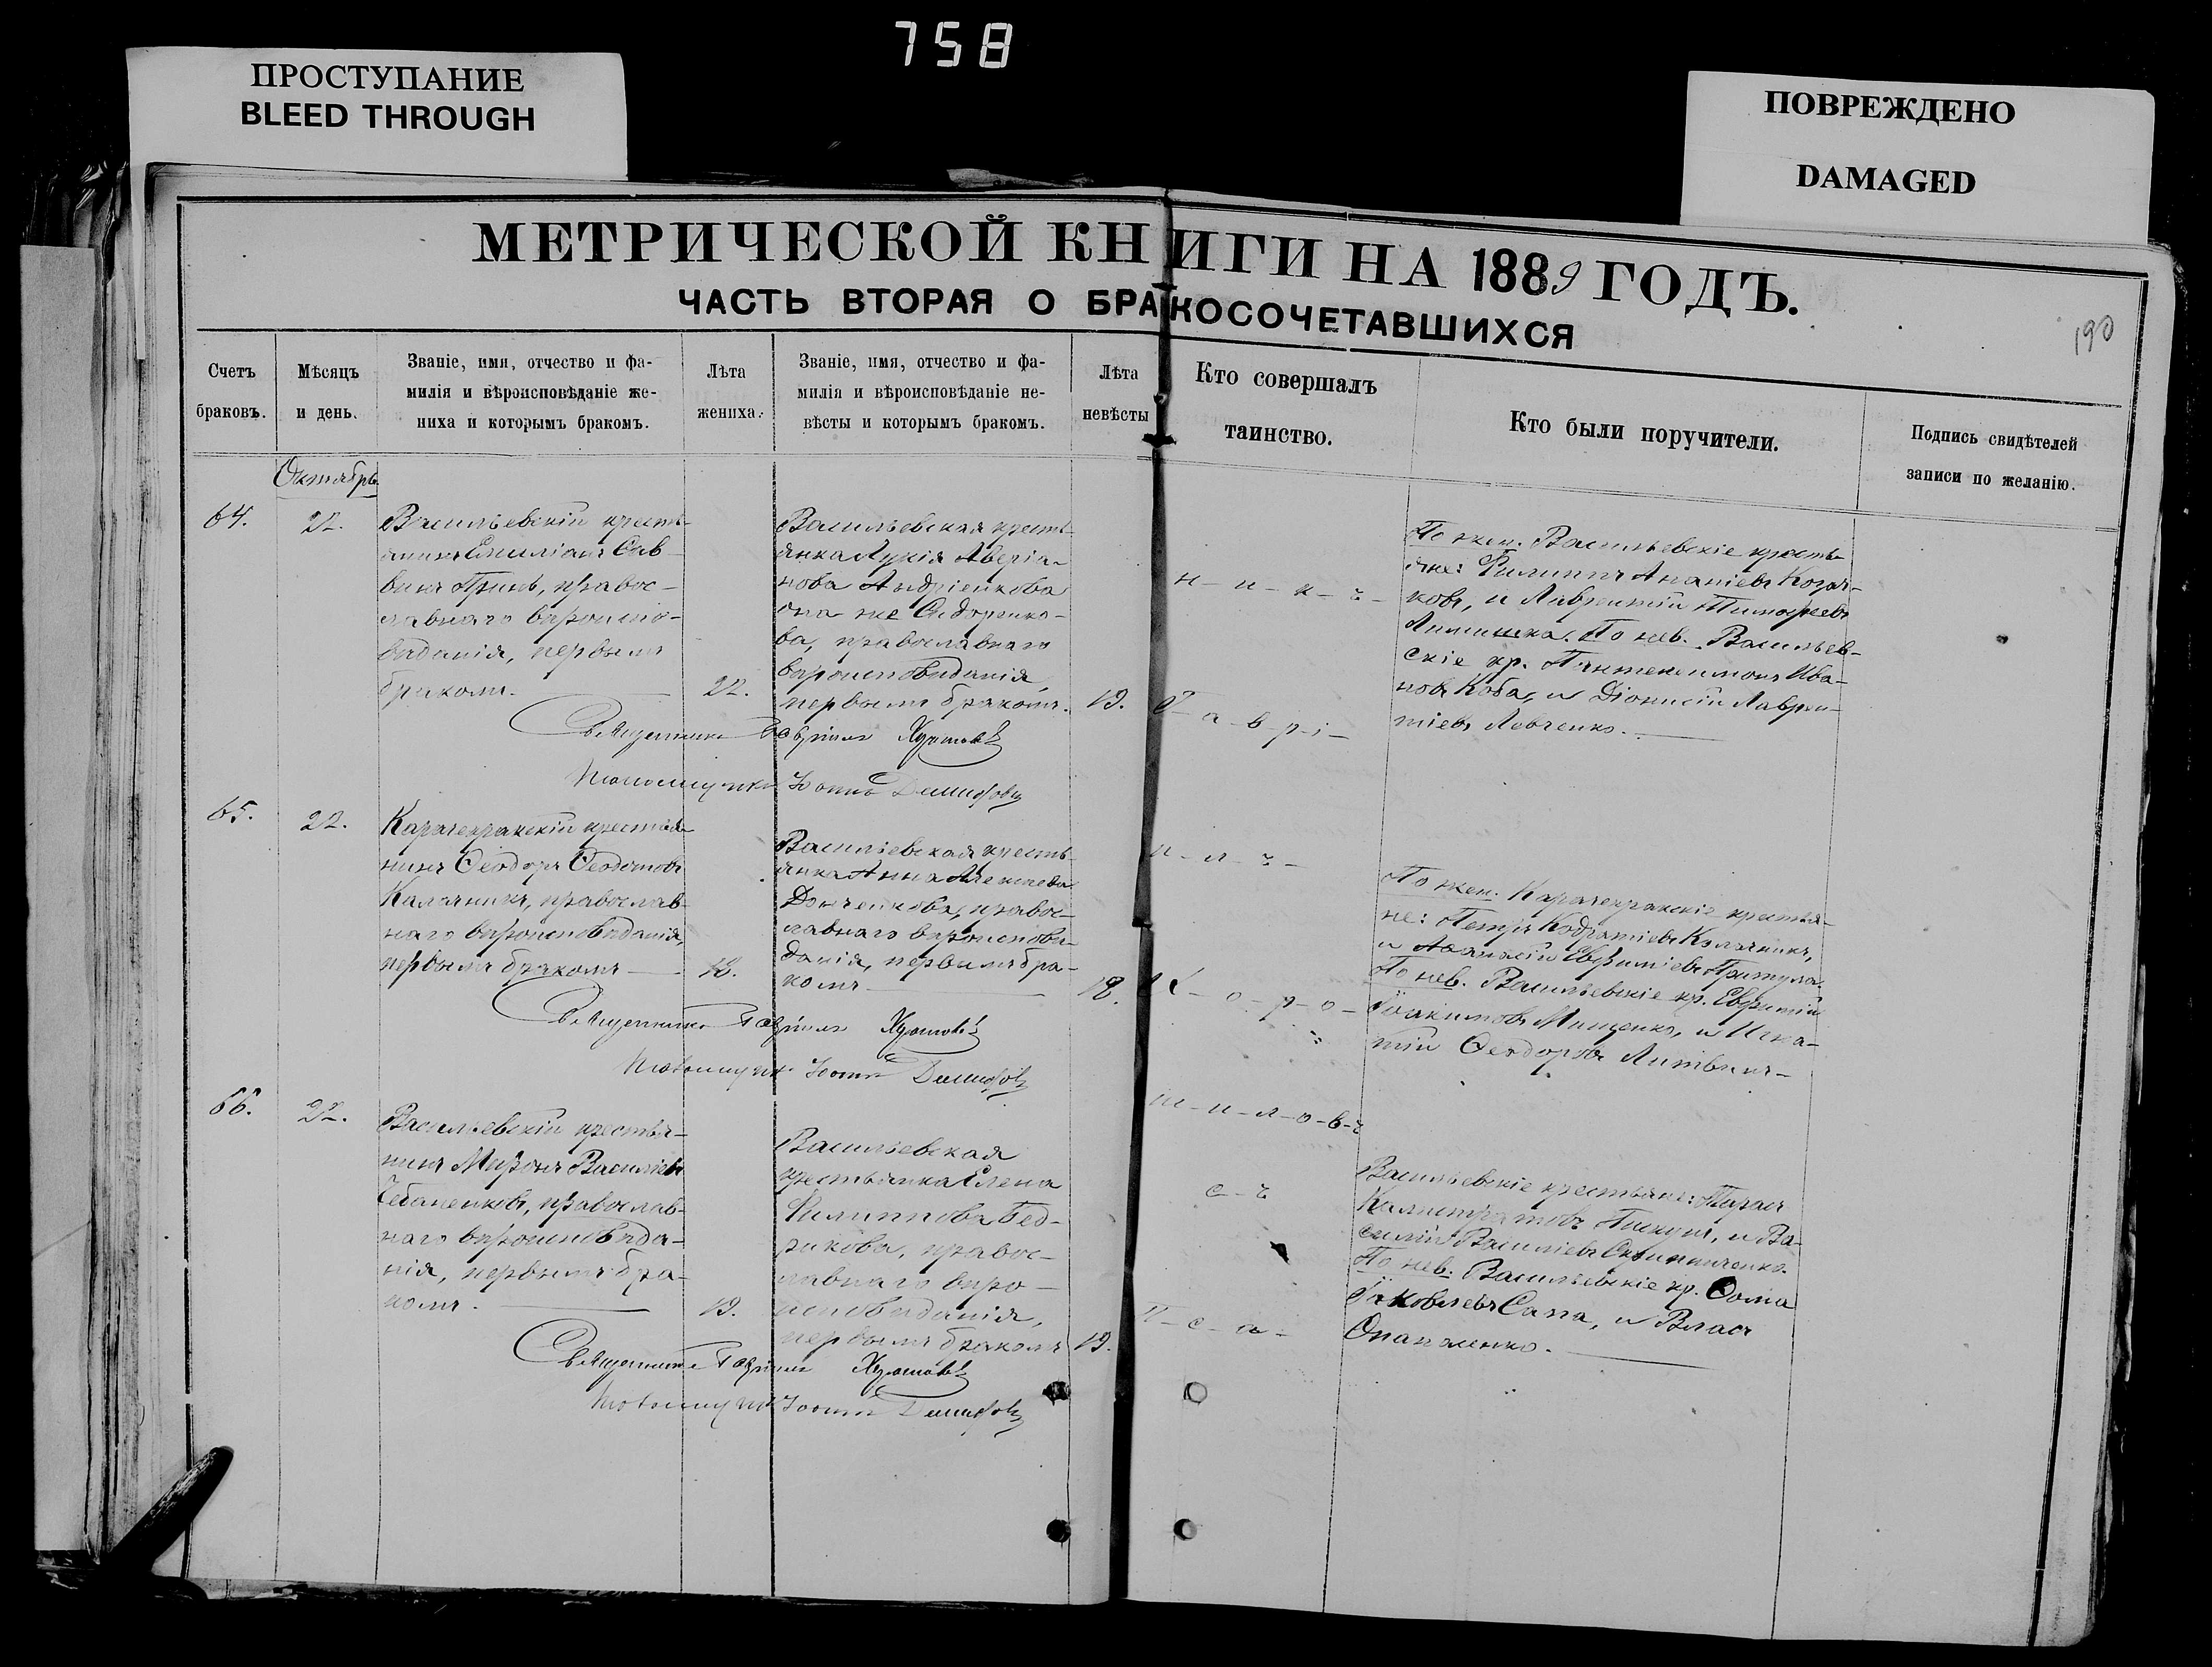 758
ПРОСТУПАНИЕ
BLEED THROUGH
ПОВРЕЖДЕНО
DAMAGED
МЕТРИЧЕСКОЙ КНИГИ НА 1889 ГОДЪ.
ЧАСТЬ ВТОРАЯ О БРАКОСОЧЕТАВШИХСЯ
190
Счетъ
браковъ.
Мѣсяцъ
и день.
Званіе, имя, отчество и фа-
милія и вѣроисповѣданіе же-
ниха и которымъ бракомъ.
Лѣта
жениха.
Званіе, имя, отчество и фа-
милія и вѣроисповѣданіе не-
вѣсты и которымъ бракомъ.
Лѣта
невѣсты
Кто совершалъ
таинство.
Кто были поручители.
Подпись свидѣтелей
записи по желанію.
Октябрь
64.
22.
Васильевскій кресть-
янинъ Емиліанъ Сав-
винъ Гринь, правос-
лавнаго вѣроиспо-
вѣданія, первымъ
бракомъ.
22.
Васильевская кресть-
янка Лукія Аверіа-
нова Андріенкова
она же Сидоренко-
ва, православнаго
вѣроисповѣданія,
первымъ бракомъ.
19.
По жен. Васильевскіе кресть-
яне: Филиппъ Ананіевъ Козач-
ковъ, и Лаврентій Тимофеевъ
По нев. Васильев-
скіе кр. Пантелеимонъ Ива-
новъ Коба, и Діонисій Лаврен-
тіевъ Левченко.
Священникъ Гавріилъ
Псаломщикъ Іоаннъ
65.
22.
Карачекракскій крестья-
нинъ Ѳеодоръ Ѳеодотовъ
Калачникъ, православ-
наго вѣроисповѣданія,
первымъ бракомъ
18.
Васильевская кресть-
янка Анна Алексѣева
Донченкова, правос-
лавнаго вѣроисповѣ-
данія, первымъ бра-
комъ
18.
По жен. Карачекракскіе крестья-
не: Петръ Кодратіевъ Калачникъ,
и Аѳанасій Евфиміевъ Притула.
По нев. Васильевскіе кр. Евфимій
Іоакимовъ Мищенко, и Игна-
тій Ѳеодоровъ Литвинъ
Священникъ Гавріилъ
Псаломщикъ Іоаннъ
66.
22.
Васильевскій крестья-
нинъ Миронъ Василіевъ
Чебаненковъ, православ-
наго вѣроисповѣда-
нія, первымъ бра-
комъ.
19.
Васильевская
крестьянка Елена
Филиппова Бед-
рикова, правос-
лавнаго вѣро-
исповѣданія,
первымъ бракомъ
19.
Васильевскіе крестьяне: Тарасъ
Калистратовъ Пискунъ, и Ва-
силій Василіевъ
По нев. Васильевскіе кр. Ѳома
Іаковлевъ Сапа, и Власъ
Опанасенко.
Священникъ Гавріилъ
Псаломщикъ Іоаннъ
н-и-к-ъ-
Г-а-в-р-і-
и-л-ъ-
Х-о-р-о-
ш-и-л-о-в-ъ
с-ъ
П-с-а-